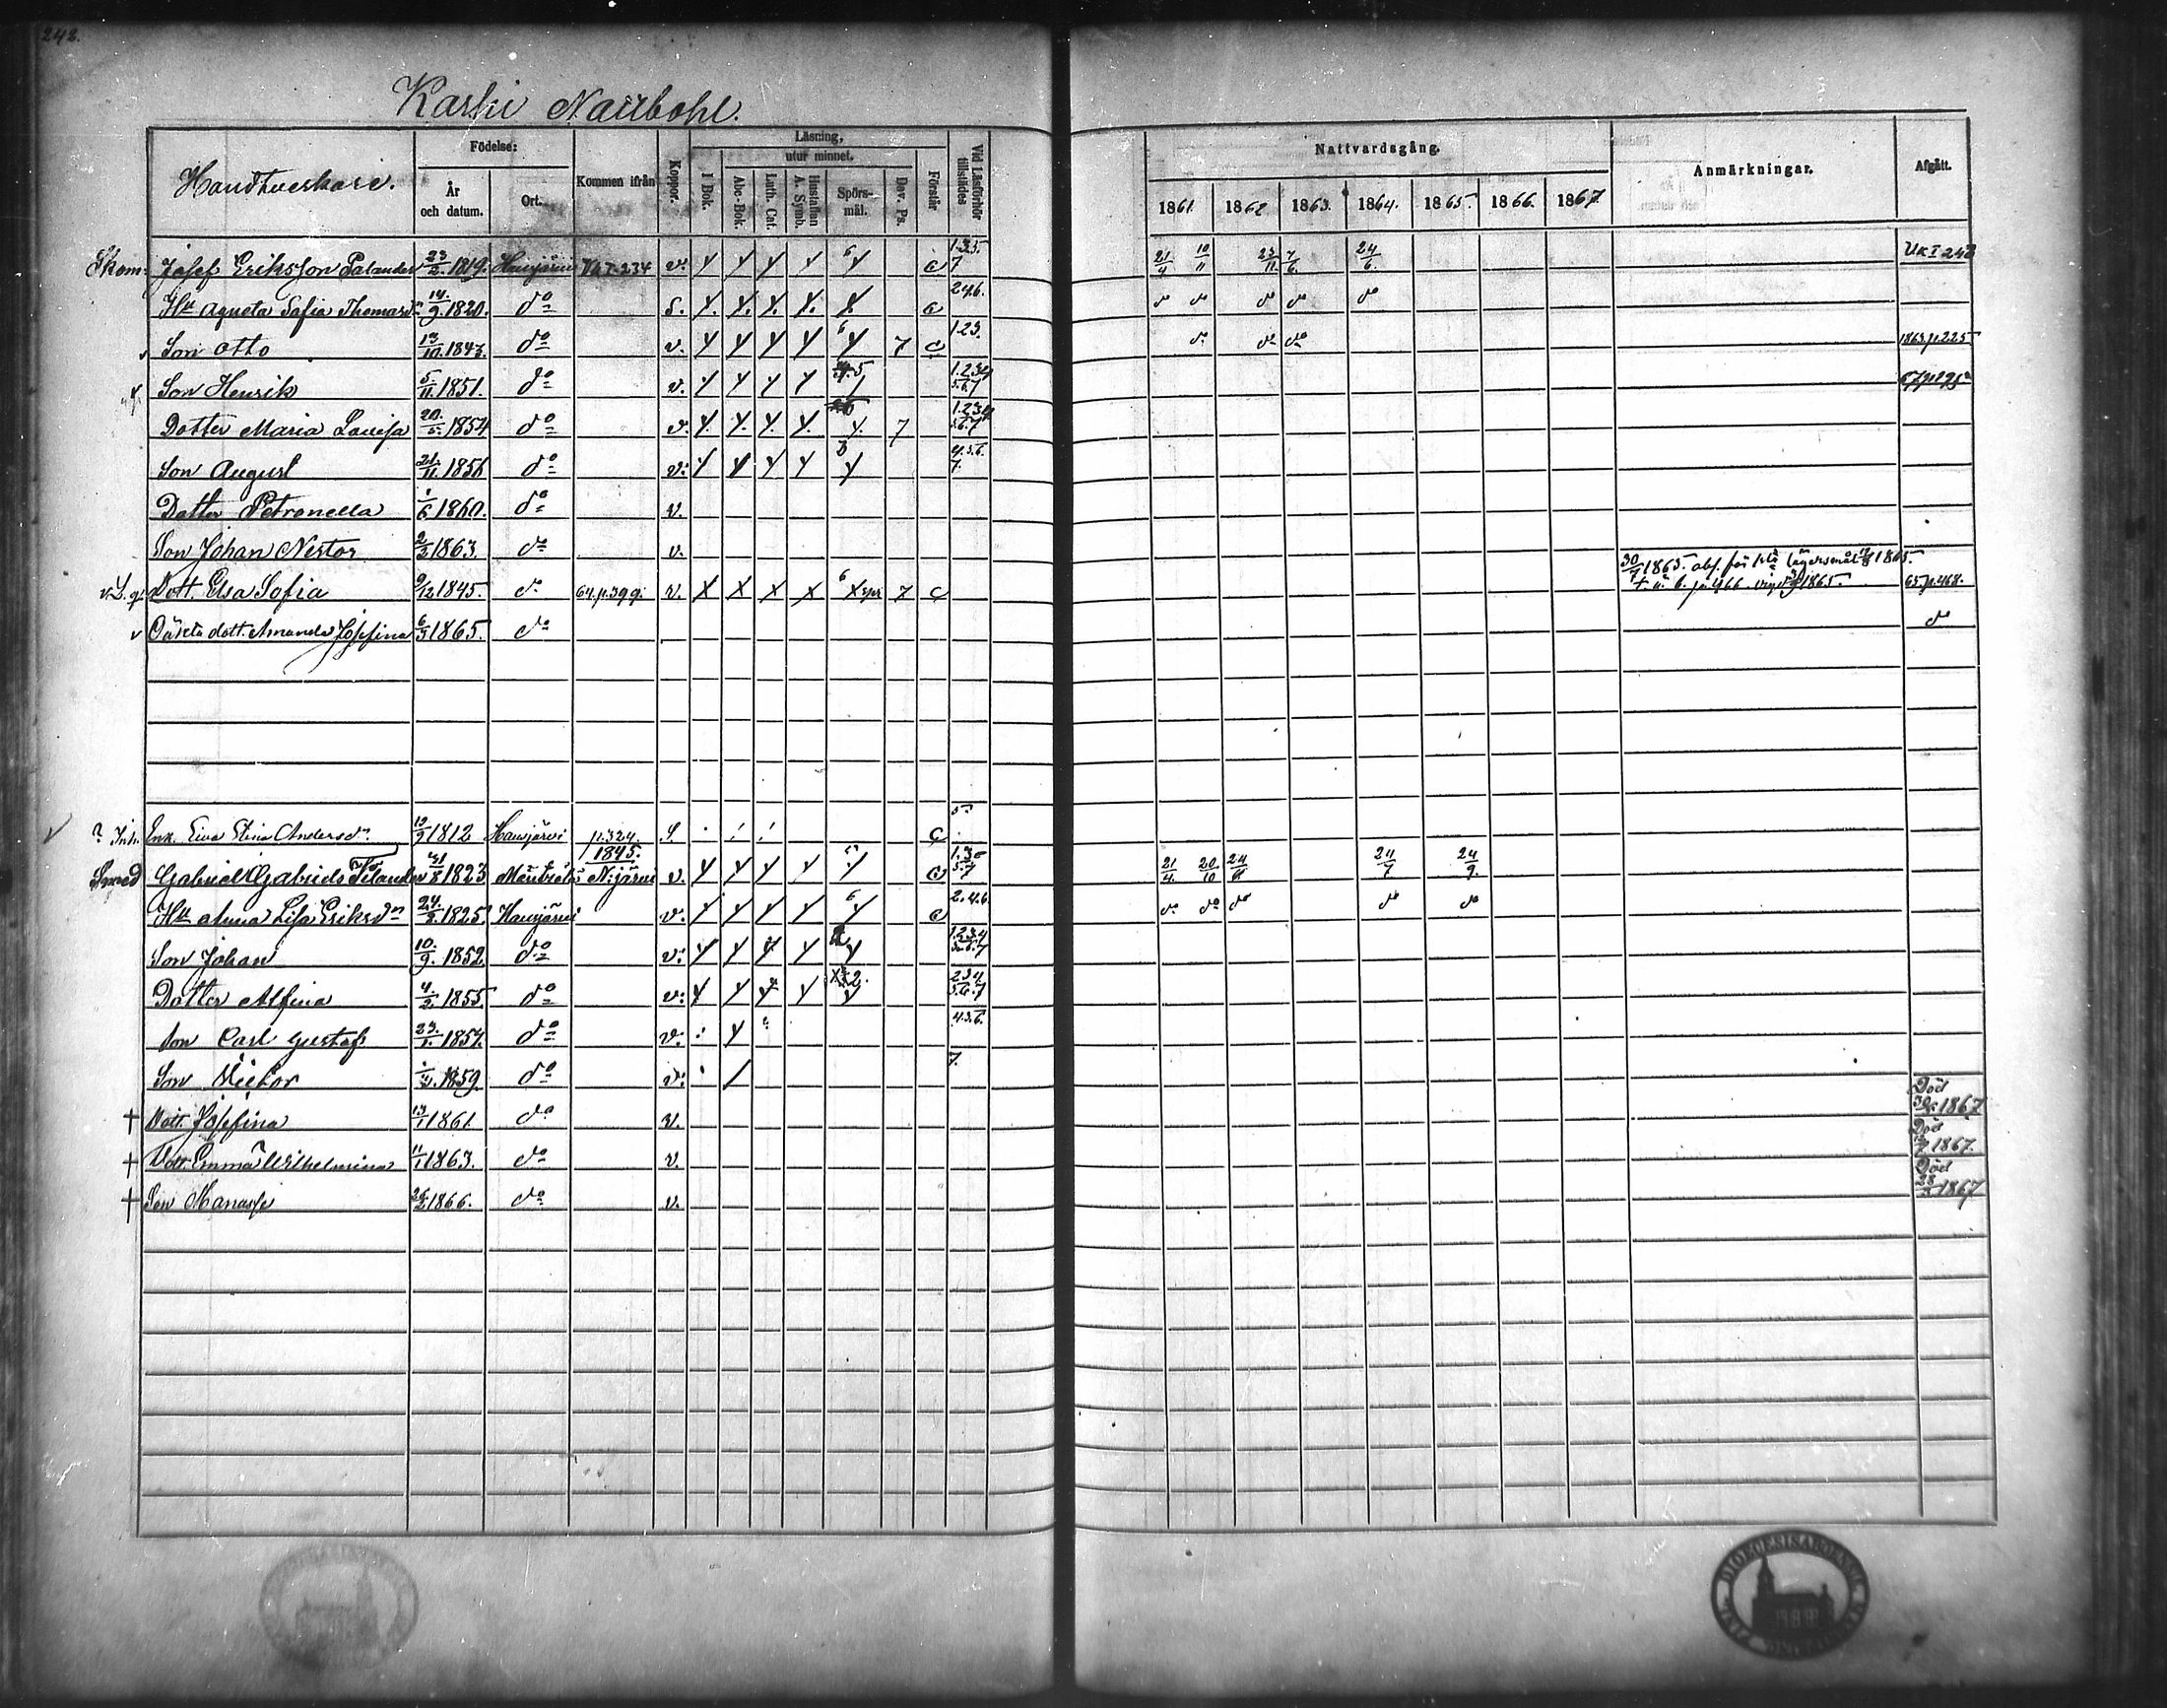 248.
Karhi Nailbohl.
Handtverkare.
Födelse:
År och datum.
Ort.
Kommen ifrån
Koppor.
Läsning,
utur minnet.
I Bok.
Abc-Bok.
Luth. Cat.
Hustaflan A. Symb.
Spörs-mål.
Dav. Ps.
Förstår
Vid Läsförhör tillstädes
Nattvardsgång.
1861. 1862 1863. 1864. 1865. 1866. 1867.
Anmärkningar.
Afgått.
Skom: Josef Eriksson Palander 23/2. 1819. Hausjärvi v. 6 c 1.3.5 7 21/4 10/11 23/11 7/6. 24/6. Uk I 248
Hu Agneta Sofia Thomasdr 14./9. 1820. do s. c 2.4.6. do do do do do
v Son Otto 13/10. 1843. do v. 6 7 c 1.2.3. do do do 1863.p.225
Son Henrik 5/11. 1851. do v. 5 1.2.3.4 5.6.7
Dotter Maria Lovisa 20./5. 1854 do v. 7 1.2.3.4 5.6.7
Son August 21./11. 1856 do v. 3 4.5.6. 7.
Dotter Petronella 1/6 1860. do v.
Son Johan Nestor 2/3 1863. do v.
Dott. Elsa Sofia 9/12 1845. do 64.p.399. v. X X X X 6 X spr 7 c 30/7 1865. abs. för 1sta lägersmål 1865. 1865. 65.p.468.
v Oäkta dott. Amanda Josefina 6/3 1865. do do
? Inh. Enk. Eva Stina Andersdr. 13/9 1812 Hausjärvi p.324. S. c 5
Smed Gabriel Gabriels Silander 31/8 1823 Mäntsälä 1845. N:järvi v. c 1.3.5 5.7 21/4. 20/10 24/6 24/7 24/9.
Hu Anna Lisa Eriksdr 24./3. 1825. Hausjärvi v. 6 c 2.4.6 do do do do do
Son Johan 10./9. 1852. do v. 1.2.3.4 5.6.7
Dotter Alfina 4./2. 1855. do v. 2.3.4 5.6.7
Son Carl Gustaf 23./1. 1857. do v. 4.5.6.
Son Victor 1859. do v. 7.
† Dott. Josefina 13/1 1861. do v. Död 1867
† Dott. Emma Wilhelmina 11/1 1863. do v. Död 1867.
† Son Manasse 26/2 1866. do v. Död 28/3 1867